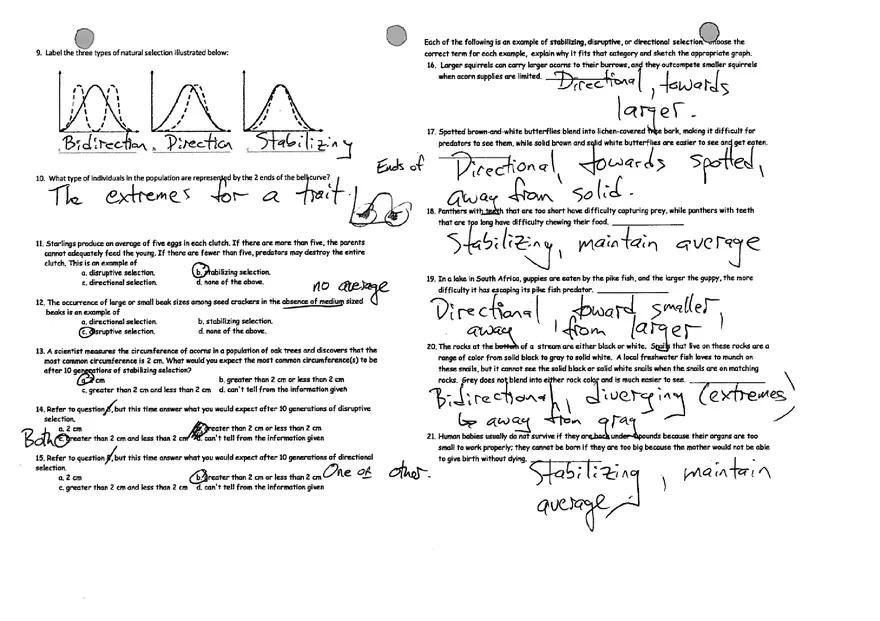 9. Label the three types of natural selection illustrated below:
Bidirection. Direction Stabilizing
10. What type of individuals in the population are represented by the 2 ends of the bellcurve? Ends of
The extremes for a trait.
11. Starlings produce an average of five eggs in each clutch. If there are more than five, the parents
cannot adequately feed the young. If there are fewer than five, predators may destroy the entire
clutch. This is an example of
a. disruptive selection. b. stabilizing selection.
c. directional selection. d. none of the above.
no average
12. The occurrence of large or small beak sizes among seed crackers in the absence of medium sized
beaks is an example of
a. directional selection. b. stabilizing selection.
c. disruptive selection. d. none of the above.
13. A scientist measures the circumference of acorns in a population of oak trees and discovers that the
most common circumference is 2 cm. What would you expect the most common circumference(s) to be
after 10 generations of stabilizing selection?
a. 2 cm b. greater than 2 cm or less than 2 cm
c. greater than 2 cm and less than 2 cm d. can't tell from the information given
14. Refer to question, but this time answer what you would expect after 10 generations of disruptive
selection.
a. 2 cm b. greater than 2 cm or less than 2 cm
Both c. greater than 2 cm and less than 2 cm d. can't tell from the information given
15. Refer to question, but this time answer what you would expect after 10 generations of directional
selection.
a. 2 cm b. greater than 2 cm or less than 2 cm One or other.
c. greater than 2 cm and less than 2 cm d. can't tell from the information given
Each of the following is an example of stabilizing, disruptive, or directional selection. Choose the
correct term for each example, explain why it fits that category and sketch the appropriate graph.
16. Larger squirrels can carry larger acorns to their burrows, and they outcompete smaller squirrels
when acorn supplies are limited. Directional, towards
larger.
17. Spotted brown-and-white butterflies blend into lichen-covered tree bark, making it difficult for
predators to see them, while solid brown and solid white butterflies are easier to see and get eaten.
Directional, towards spotted,
away from solid.
18. Panthers with teeth that are too short have difficulty capturing prey, while panthers with teeth
that are too long have difficulty chewing their food.
Stabilizing, maintain average
19. In a lake in South Africa, guppies are eaten by the pike fish, and the larger the guppy, the more
difficulty it has escaping its pike fish predator.
Directional, toward smaller,
away from larger
20. The rocks at the bottom of a stream are either black or white. Snails that live on these rocks are a
range of color from solid black to gray to solid white. A local freshwater fish loves to munch on
these snails, but it cannot see the solid black or solid white snails when the snails are on matching
rocks. Grey does not blend into either rock color and is much easier to see.
Bidirectional, diverging (extremes)
away from gray
21. Human babies usually do not survive if they are under pounds because their organs are too
small to work properly; they cannot be born if they are too big because the mother would not be able
to give birth without dying.
Stabilizing, maintain
average